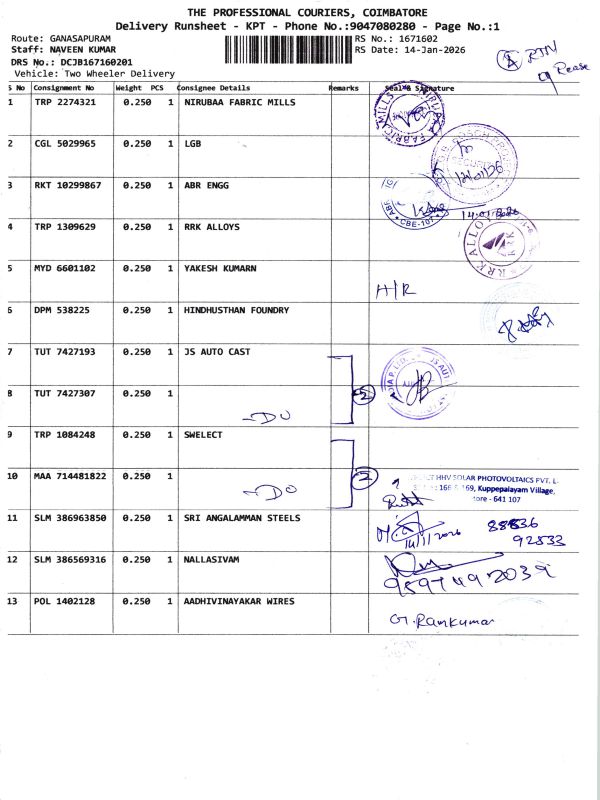 THE PROFESSIONAL COURIERS, COIMBATORE
Delivery Runsheet - KPT - Phone No.:9047080280 - Page No.:1
Route: GANASAPURAM
Staff: NAVEEN KUMAR
DRS No.: DCJB167160201
Vehicle: Two Wheeler Delivery
RS No.: 1671602
RS Date: 14-Jan-2026
RTN
S No Consignment No Weight PCS Consignee Details Remarks Seal & Signature
1 TRP 2274321 0.250 1 NIRUBAA FABRIC MILLS
2 CGL 5029965 0.250 1 LGB
3 RKT 10299867 0.250 1 ABR ENGG
CBE-107
4 TRP 1309629 0.250 1 RRK ALLOYS
14.01.2026
RRK ALLO
RRK
5 MYD 6601102 0.250 1 YAKESH KUMARN
H/R
6 DPM 538225 0.250 1 HINDHUSTHAN FOUNDRY
7 TUT 7427193 0.250 1 JS AUTO CAST
8 TUT 7427307 0.250 1
DO
2
9 TRP 1084248 0.250 1 SWELECT
10 MAA 714481822 0.250 1
DO
2
HHV SOLAR PHOTOVOLTAICS PVT. L
169, Kuppepalayam Village,
tore - 641 107
11 SLM 386963850 0.250 1 SRI ANGALAMMAN STEELS
14/1/2026
92533
12 SLM 386569316 0.250 1 NALLASIVAM
9597492039
13 POL 1402128 0.250 1 AADHIVINAYAKAR WIRES
G. Ramkumar